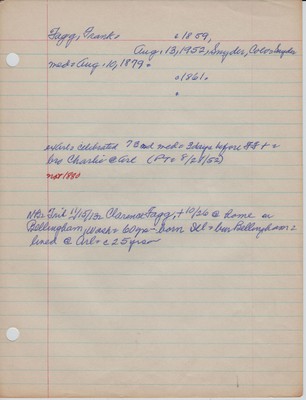 Fagg, Frank. c 1859,
Aug. 13, 1952, Snyder, Colo=Snyder
med= Aug. 10, 1879.
c 1861.
celebrated 73rd med= 3 days before
bro Charlie @ Arl (FT= 8/28/52)
not 1880
NB= Trib 11/15/ Clarence Fagg, + 10/26 @ home in
Bellingham, Wash= 60 yrs= born Ill= bur Bellingham=
lived @ Arl= c 25 years